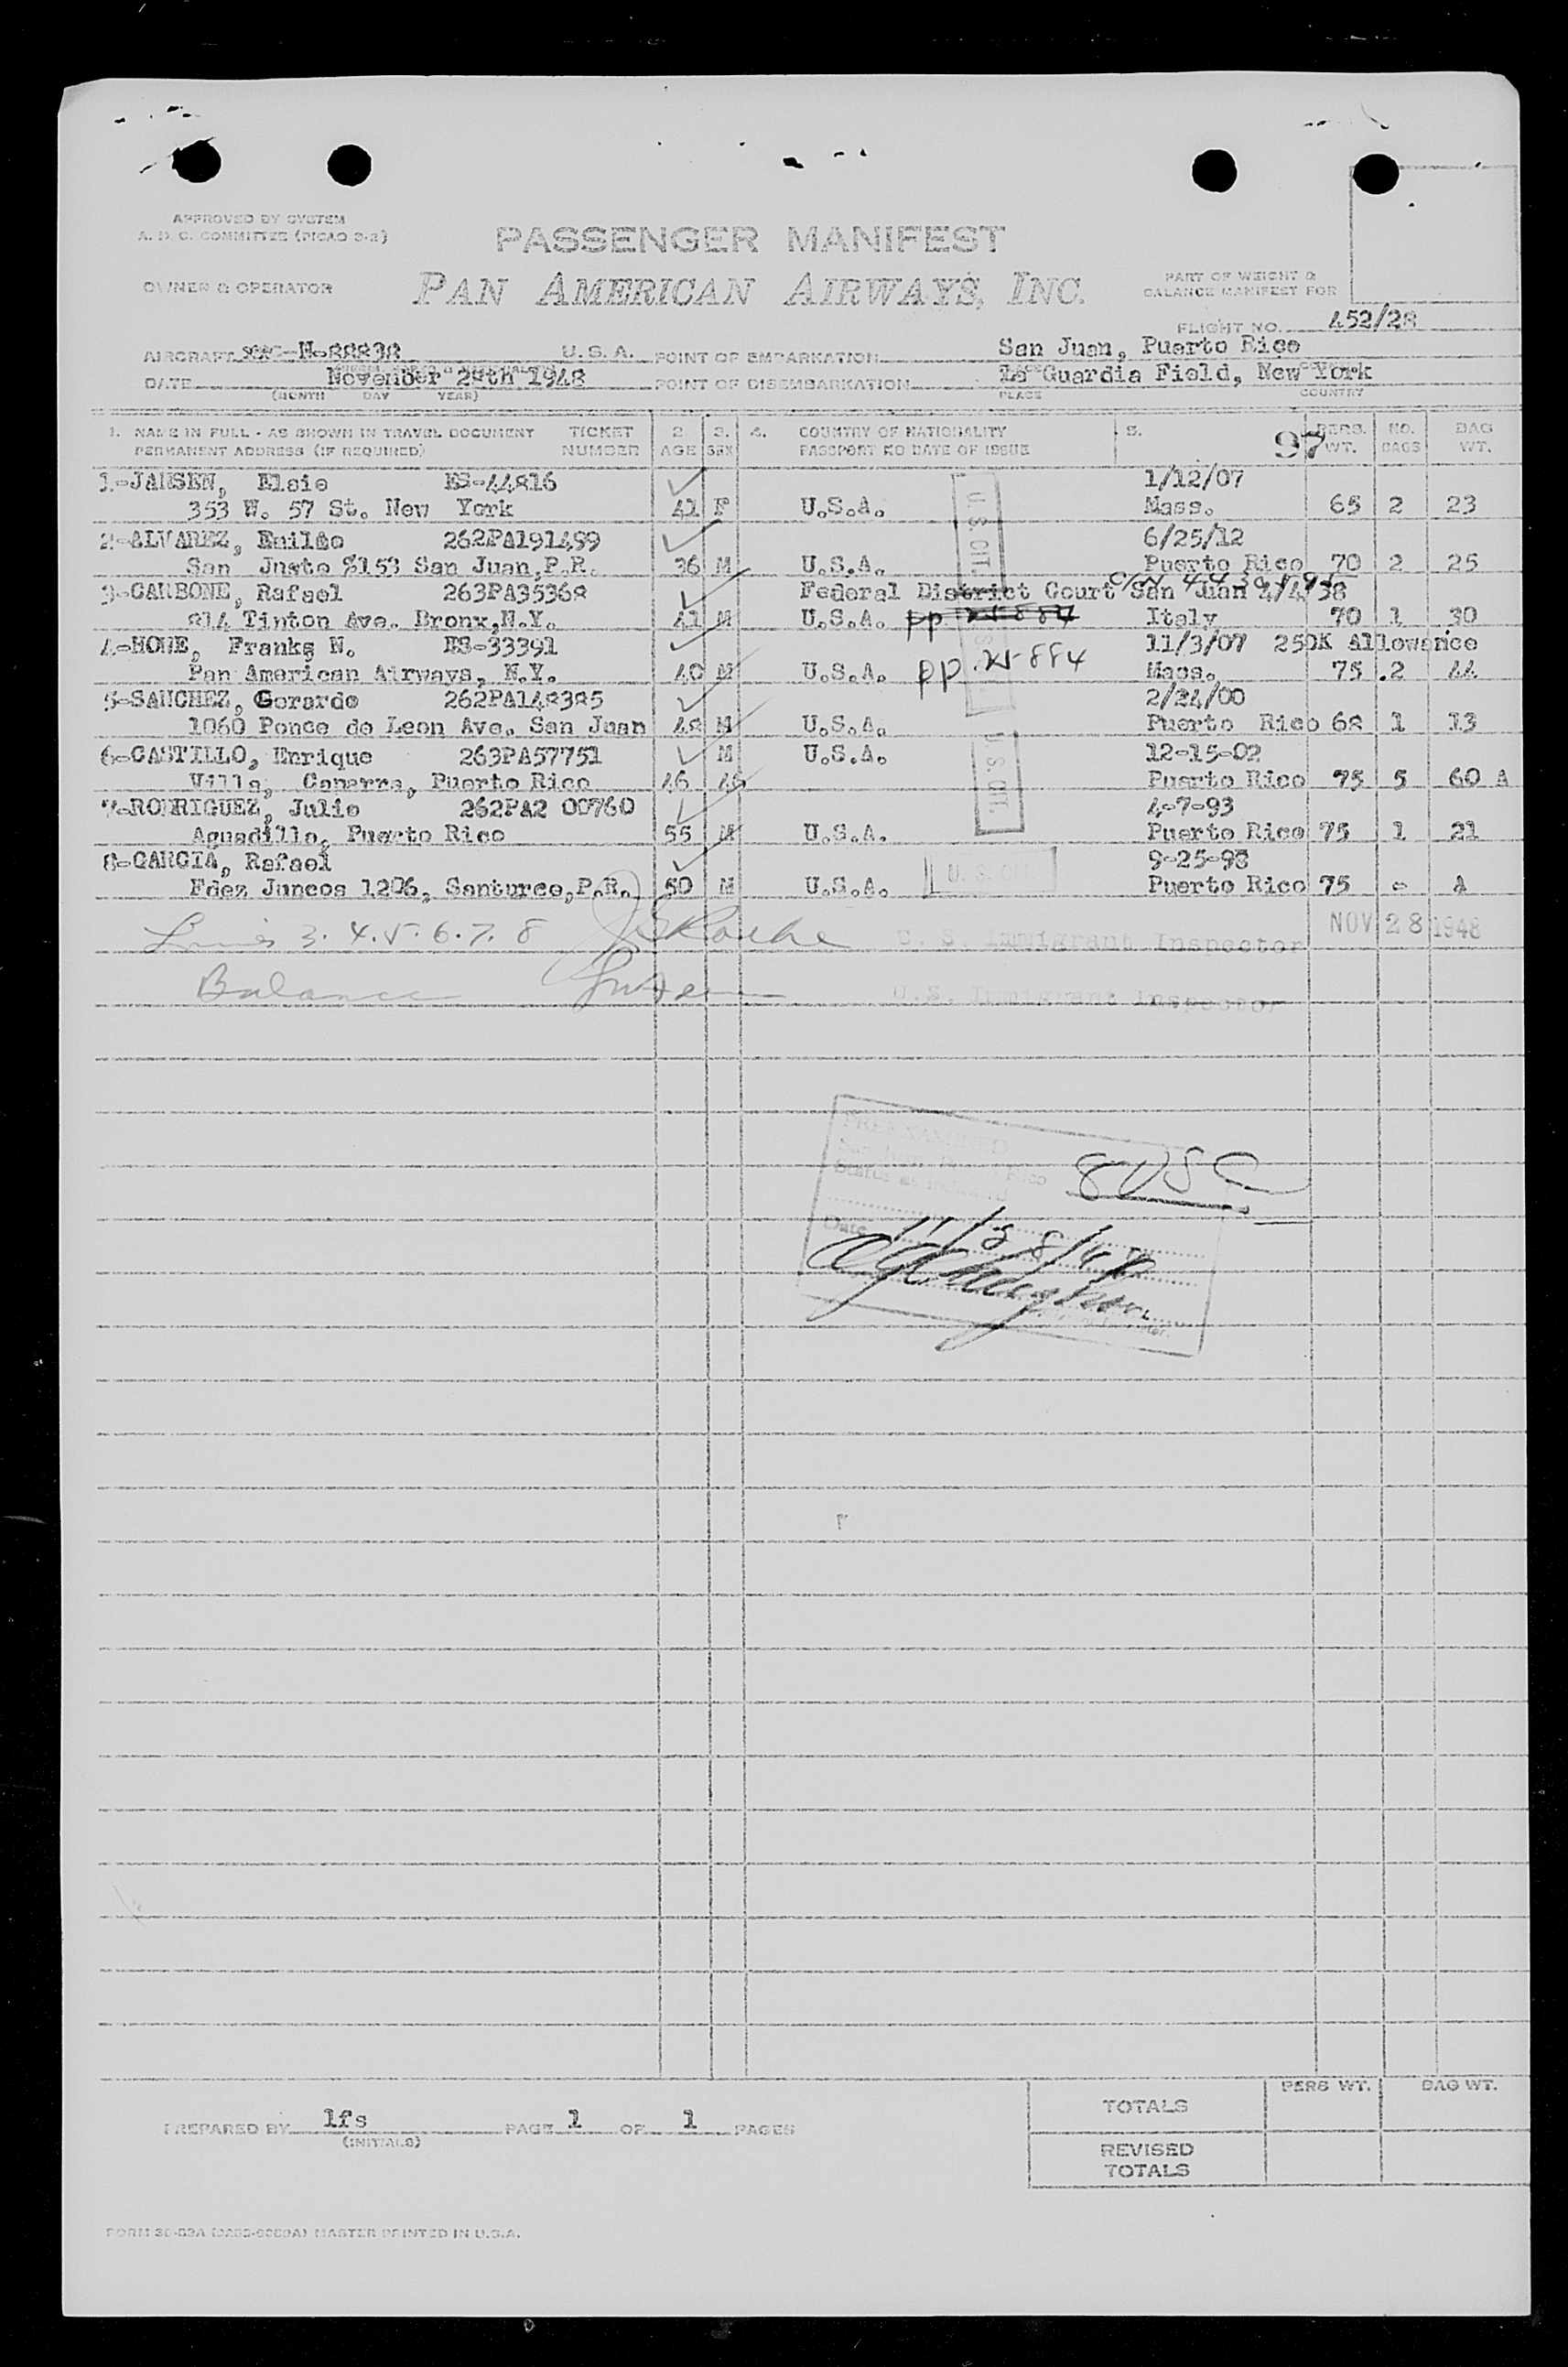 APPROVED BY SYSTEM
A. D. C. COMMITTEE (PICAO 2-2)
PASSENGER MANIFEST
OWNER & OPERATOR
PAN AMERICAN AIRWAYS, INC.
PART OF WEIGHT &
BALANCE MANIFEST FOR
FLIGHT NO. 452/28
AIRCRAFT N-88838 U. S. A. POINT OF EMBARKATION San Juan, Puerto Rico
DATE November 28th 1948 POINT OF DISEMBARKATION La Guardia Field, New York
(MONTH DAY YEAR) PLACE COUNTRY
1. NAME IN FULL - AS SHOWN IN TRAVEL DOCUMENT TICKET 2. 3. 4. COUNTRY OF NATIONALITY 5. 97 PERS. NO. BAG
PERMANENT ADDRESS (IF REQUIRED) NUMBER AGE SEX PASSPORT NO DATE OF ISSUE WT. BAGS WT.
1-JANSEN, Elsie ES-44816 1/12/07
353 W. 57 St. New York 41 F U.S.A. Mass. 65 2 23
2-ALVAREZ, Emilio 262PA191499 6/25/12
San Justo %153 San Juan, P.R. 36 M U.S.A. Puerto Rico 70 2 25
3-CARBONE, Rafael 263PA35368 Federal District Court San Juan 4/4/38
814 Tinton Ave. Bronx, N.Y. 41 M U.S.A. pp Italy 70 1 30
4-HOWE, Franks N. ES-33391 11/3/07 250K Allowance
Pan American Airways, N.Y. 40 M U.S.A. pp. Mass. 75 .2 44
5-SANCHEZ, Gerardo 262PA148385 2/24/00
1060 Ponce de Leon Ave. San Juan 48 M U.S.A. Puerto Rico 68 1 13
6-CASTILLO, Enrique 263PA57751 M U.S.A. 12-15-02
Villa, Puerto Rico 46 46 Puerto Rico 75 5 60 A
7-RODRIGUEZ, Julio 262PA2 00760 4-7-93
Aguadilla, Puerto Rico 55 M U.S.A. Puerto Rico 75 1 21
8-GARCIA, Rafael 9-25-98
Fdez Juncos 1206, Santurce, P.R. 50 M U.S.A. Puerto Rico 75 - A
U. S. CIT.
U. S. CIT.
U. S. CIT.
Lines 3. 4. 5. 6. 7. 8 U. S. Immigrant Inspector NOV 28 1948
Balance U. S. Immigrant Inspector
PREEXAMINED
San Juan, Puerto Rico
Status as indicated
8 USC
Date 11/28/48
PREPARED BY lfs PAGE 1 OF 1 PAGES
(INITIALS)
PERS WT. BAG WT.
TOTALS
REVISED
TOTALS
MASTER PRINTED IN U.S.A.